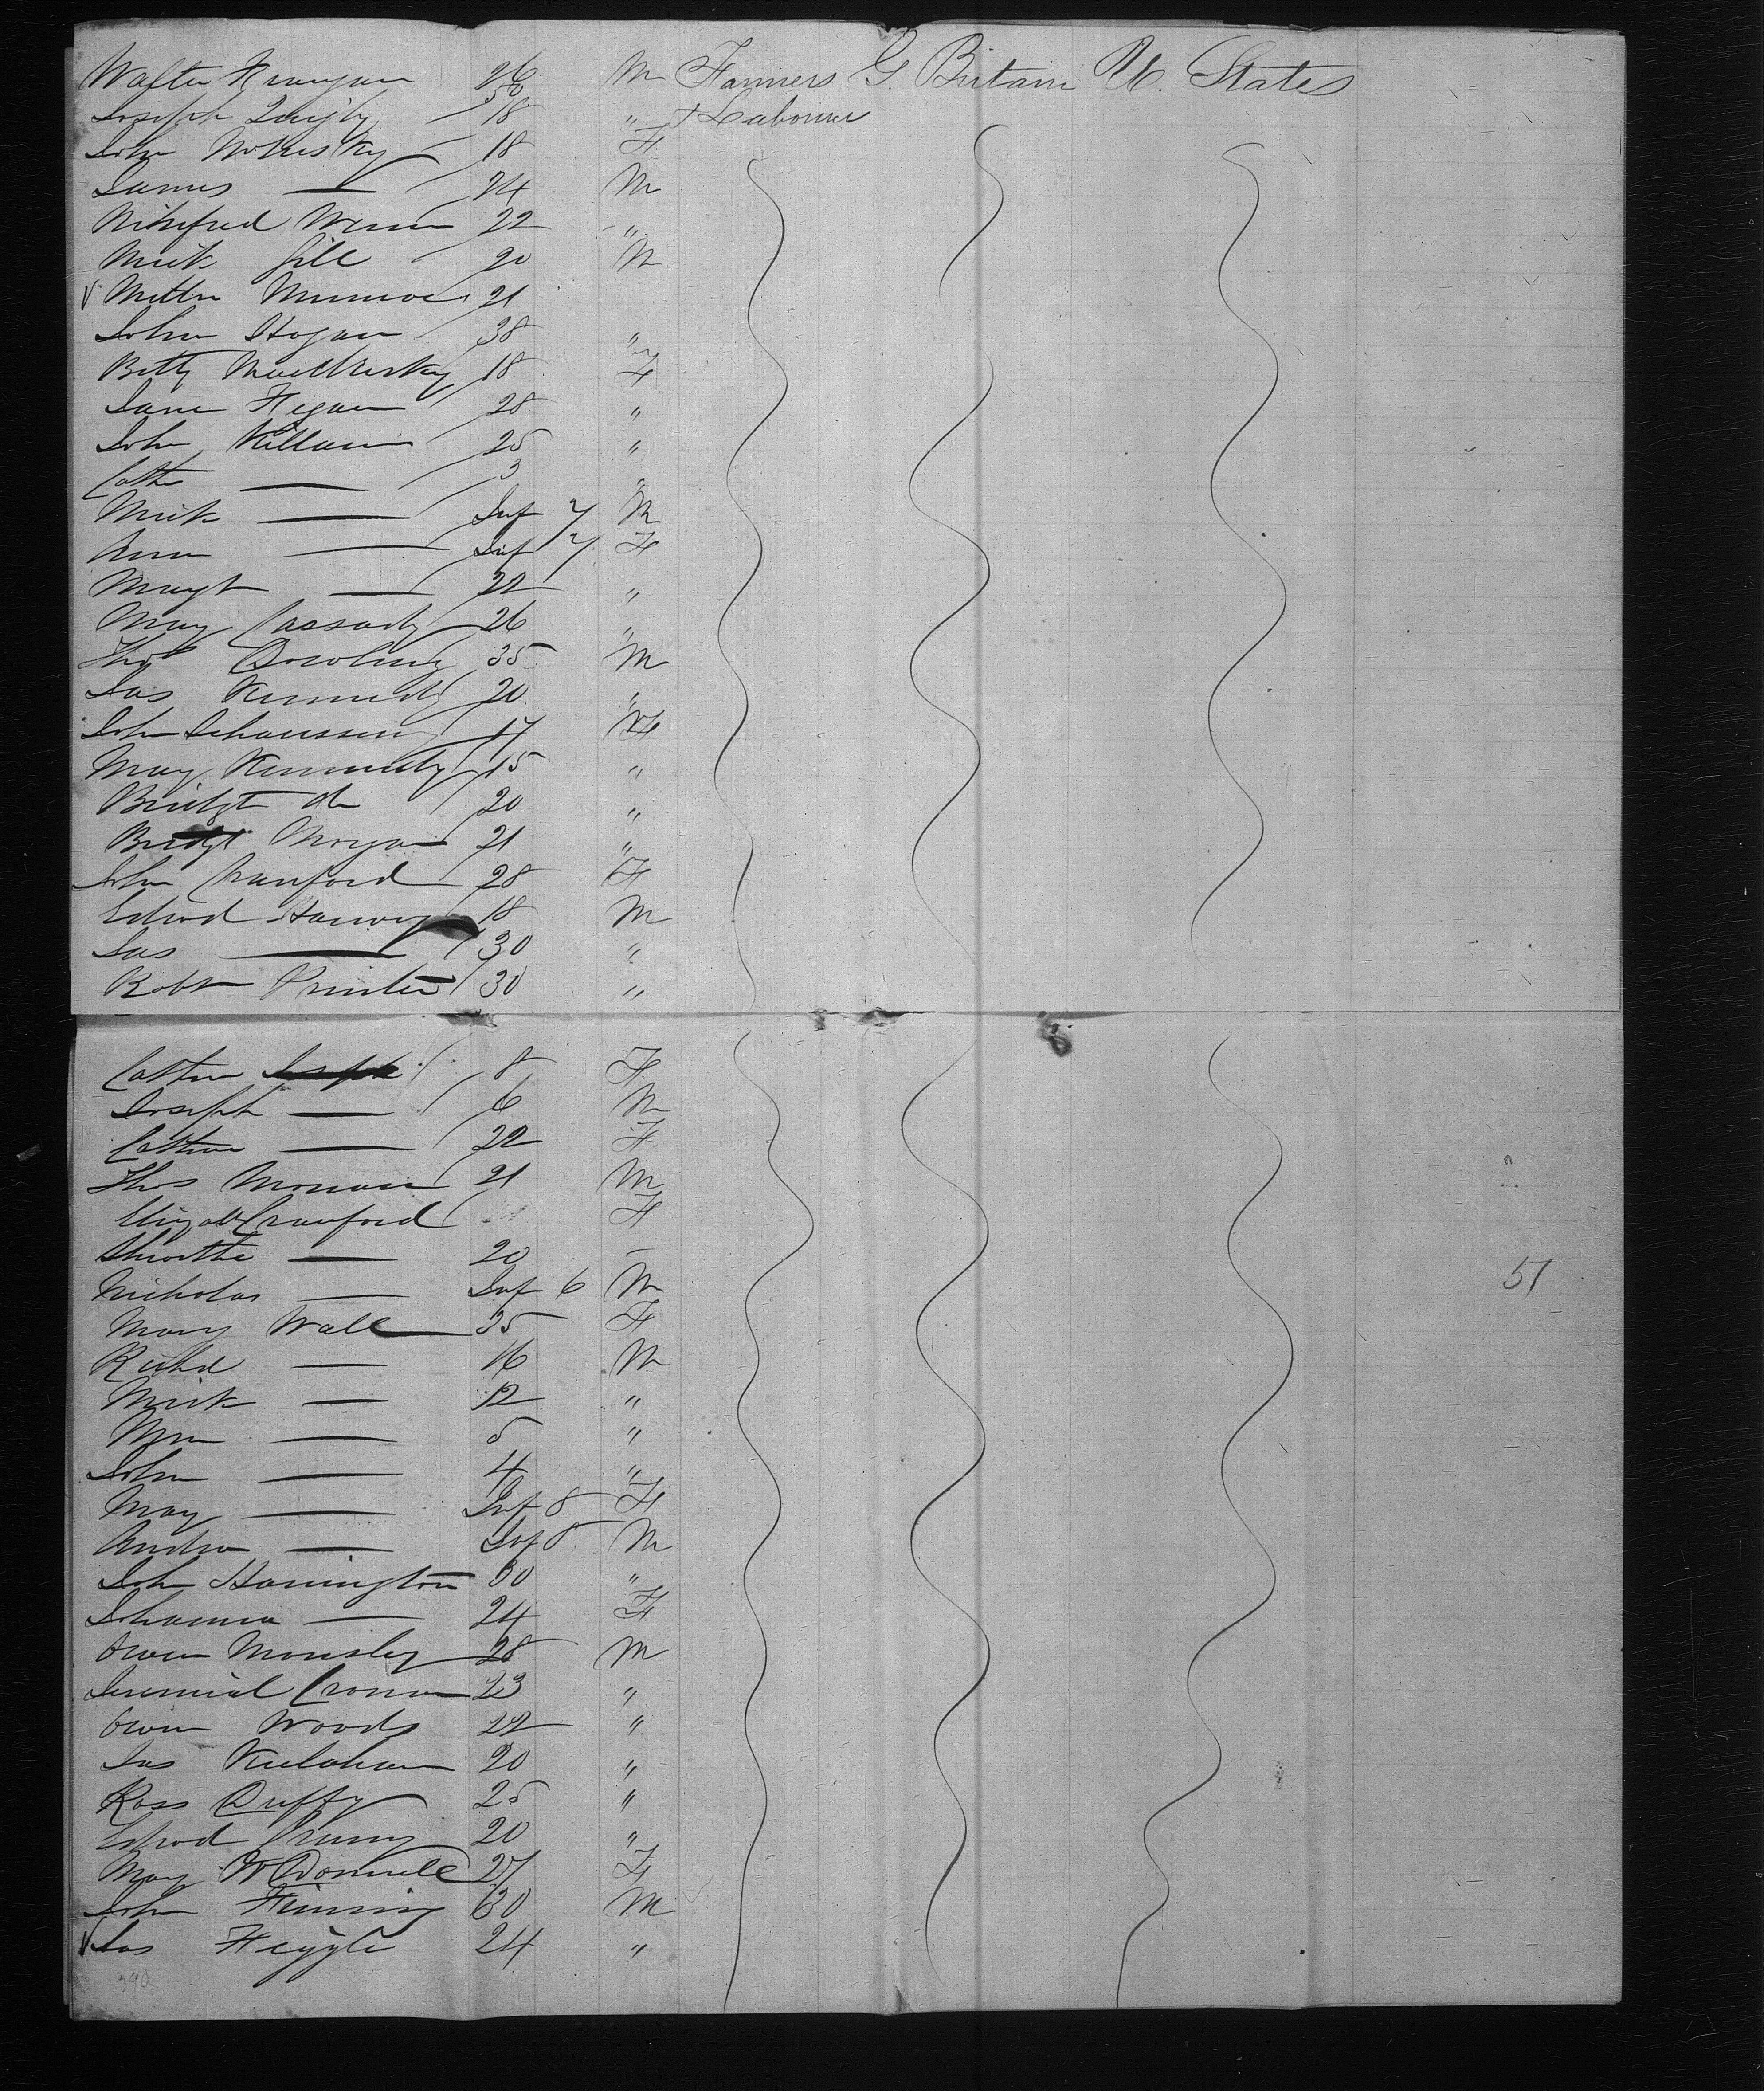 Walter 26 M Farmers G. Britain U. States
Joseph Quigly 18 " + Labourers
John 18 F
James — 24 M
Winefred 22 "
Mick Gill 20 M
21
John Hogan 38 "
Betty 18 F
Jane Hegan 28 "
John Killain 25 "
Cath — 3 "
Mick — Inf 7 M
Ann — Inf 7 F
Margt — 22 "
Mary Cassady 26 "
Thos Dowling 35 M
Jas Kennedy 20 "
John 17
Mary Kennedy 15 "
Bridgt do 20 "
Bridgt Morgan 21 "
John Crawford 28 F
Edwd 18 M
Jas — 30 "
Robt 30 "
Cathn 8 F
Joseph — 6 M
Cathne — 22 F
Thos 21 M
Crawford F
— 20 —
Nicholas — Inf 6 M
51
Mary Wall 35 F
Richd — 16 M
Mick — 12 "
Wm — 5 "
John — 4 "
Mary — Inf 8 F
Andrw — Inf 8 M
John Harrington 30 "
Johanna — 24 F
Owen 28 M
Jeremiah Cronin 23 "
Owen Woods 22 "
Jas 20 "
Ross Duffy 25 "
Edwd 20 "
Mary McDonnell 27 F
John 30 M
Jas 24 "
340